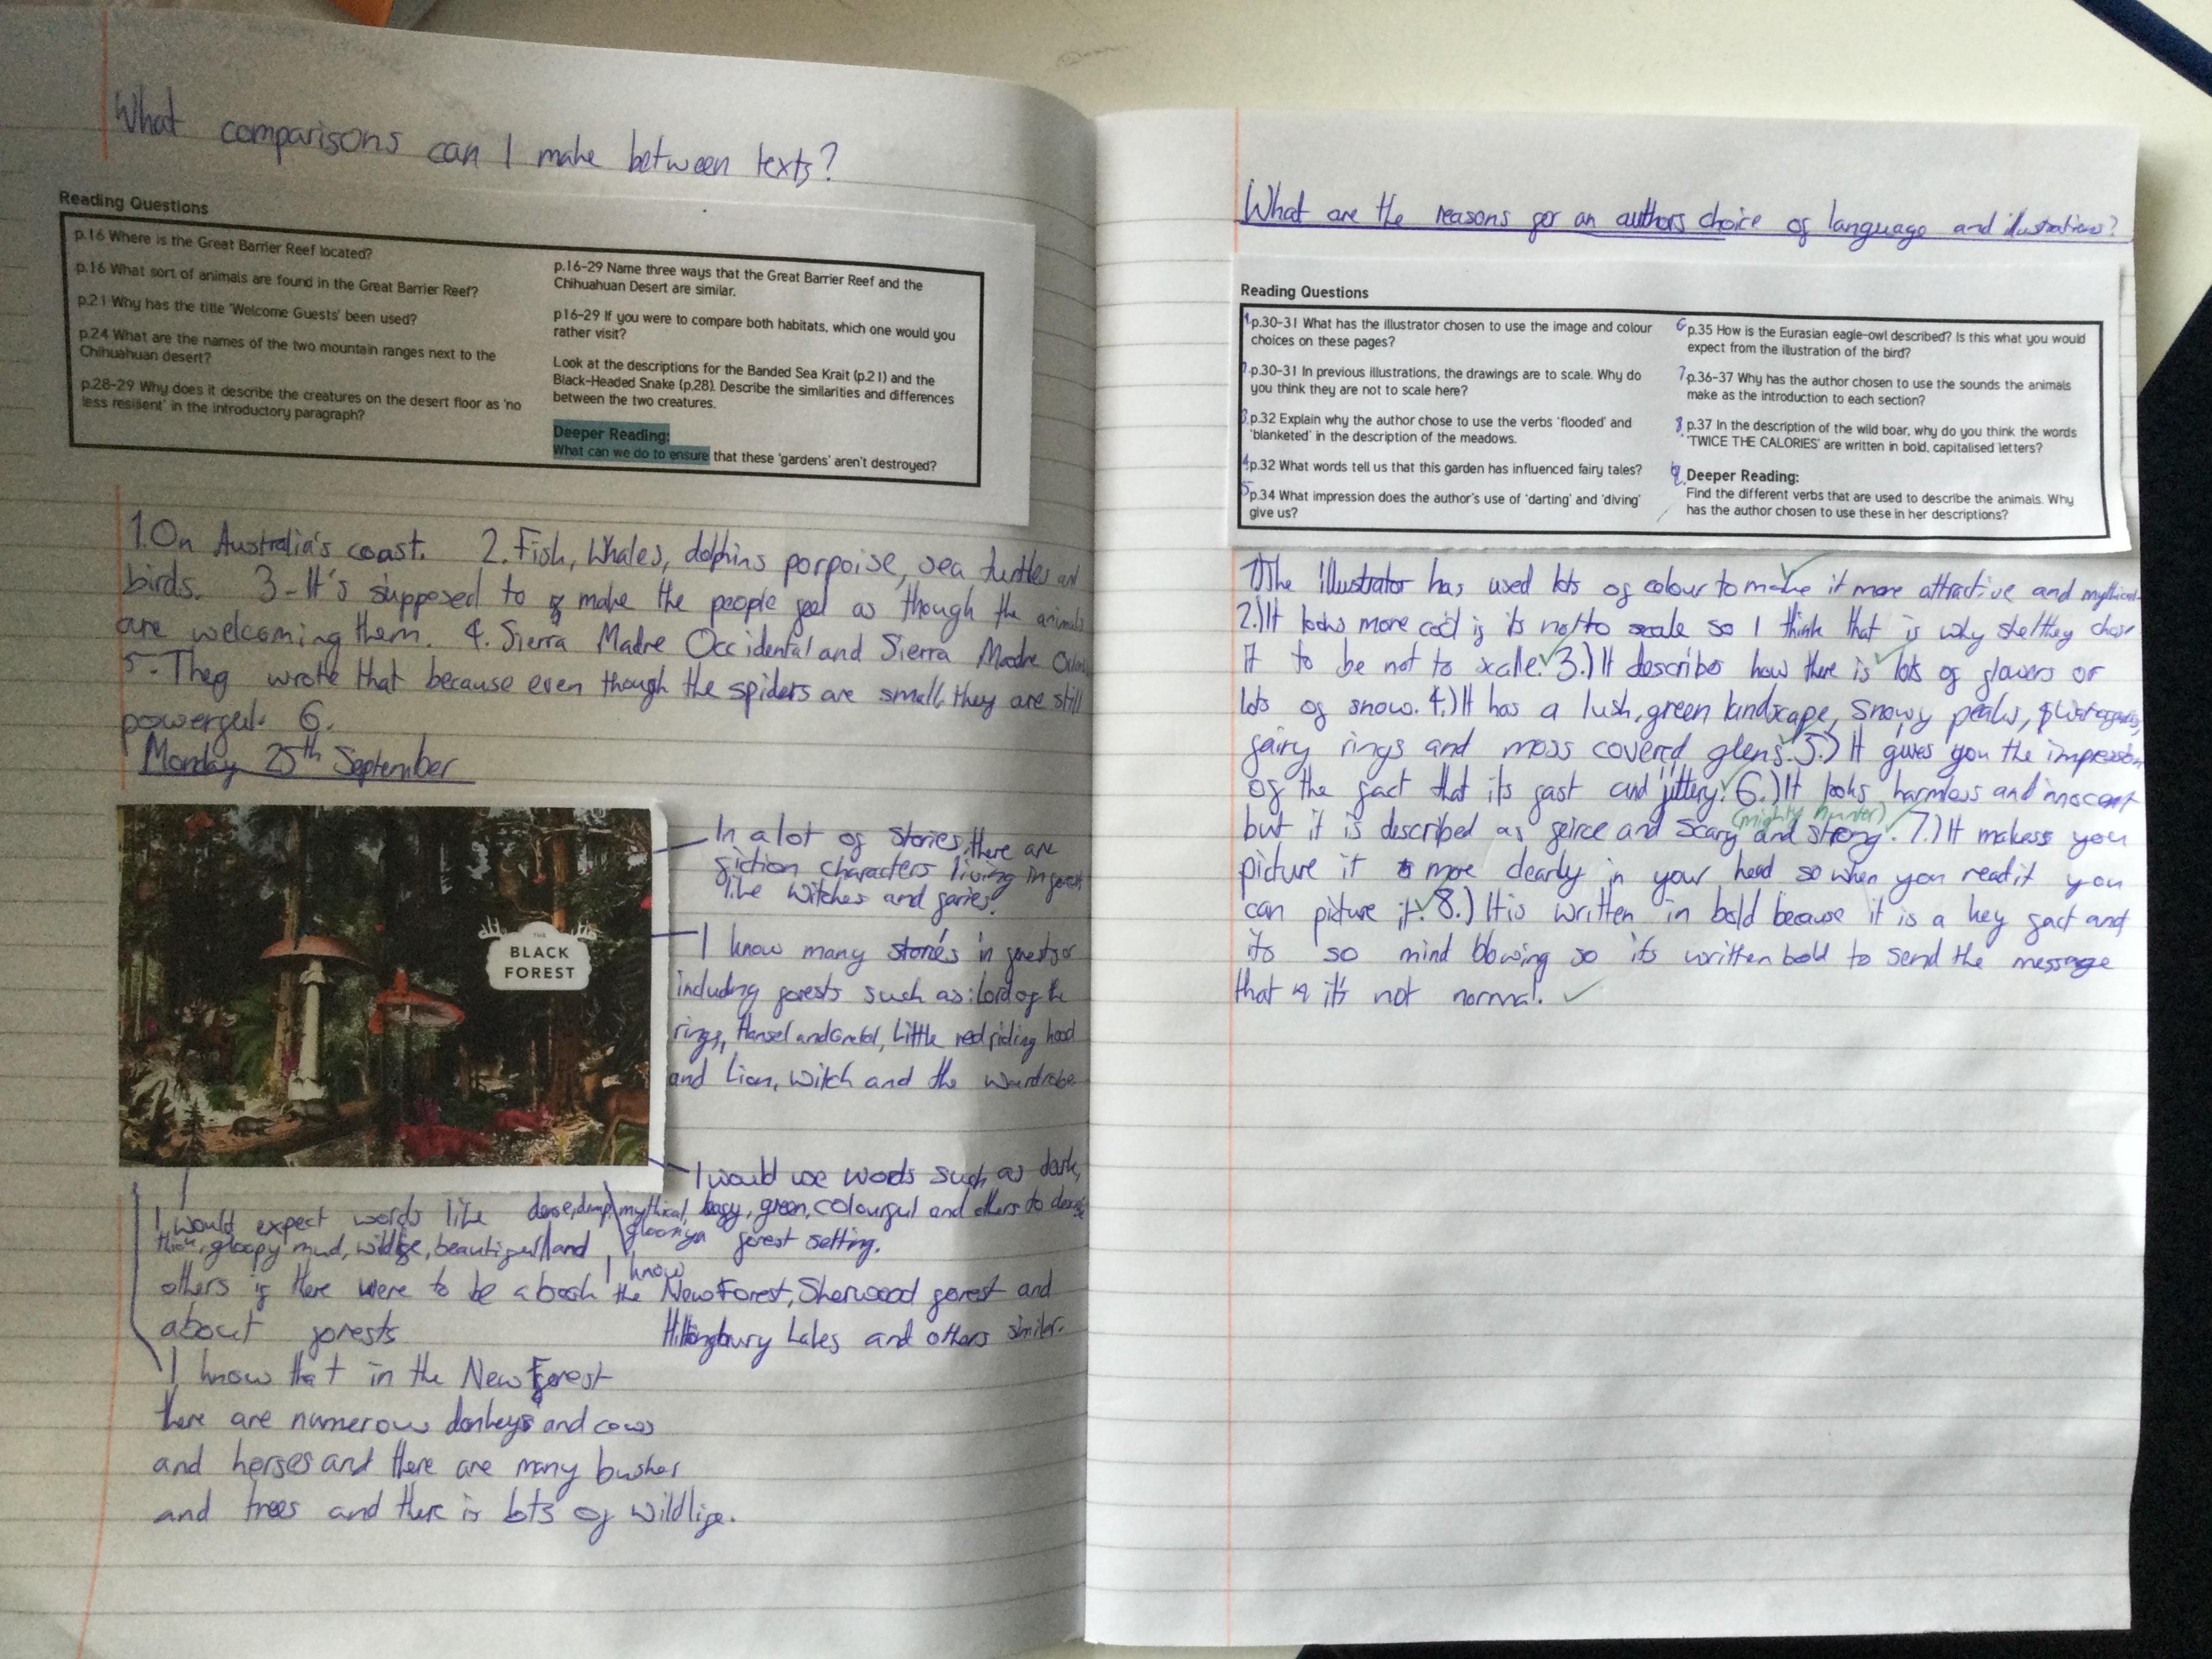 What comparisons can I make between texts?
Reading Questions
p.16 Where is the Great Barrier Reef located?
p.16 What sort of animals are found in the Great Barrier Reef?
p.21 Why has the title 'Welcome Guests' been used?
p.24 What are the names of the two mountain ranges next to the
Chihuahuan desert?
p.28-29 Why does it describe the creatures on the desert floor as 'no
less resilient' in the introductory paragraph?
p.16-29 Name three ways that the Great Barrier Reef and the
Chihuahuan Desert are similar.
p16-29 If you were to compare both habitats, which one would you
rather visit?
Look at the descriptions for the Banded Sea Krait (p.21) and the
Black-Headed Snake (p.28). Describe the similarities and differences
between the two creatures.
Deeper Reading:
What can we do to ensure that these 'gardens' aren't destroyed?
1.On Australia's coast. 2. Fish, Whales, dolphins porpoise, sea turtles and
birds. 3-It's supposed to make the people feel as though the animals
are welcoming them. 4. Sierra Madre Occidental and Sierra Madre
5-They wrote that because even though the spiders are small, they are still
powerful. 6.
Monday 25th September
THE
BLACK
FOREST
In a lot of stories, there are
fiction characters living in forests
like witches and faries.
I know many stories in forests or
including forests such as: Lord of the
rings, Hansel and Gretel, Little red riding hood
and Lion, witch and the wardrobe
I would use words such as dark,
mythical, green, colourful and others to
gloomy a forest setting.
I would expect words like dense, damp
thick, gloopy mud, wildlife, beautiful and
others if there were to be a book
about forests
I know
the New Forest, Sherwood forest and
Hiltingbury Lakes and others similar.
I know that in the New Forest
there are numerous donkeys and cows
and horses and there are many bushes
and trees and there is lots of wildlife.
What are the reasons for an authors choice of language and illustrations?
Reading Questions
1 p.30-31 What has the illustrator chosen to use the image and colour
choices on these pages?
p.30-31 In previous illustrations, the drawings are to scale. Why do
you think they are not to scale here?
3 p.32 Explain why the author chose to use the verbs 'flooded' and
'blanketed' in the description of the meadows.
4 p.32 What words tell us that this garden has influenced fairy tales?
5 p.34 What impression does the author's use of 'darting' and 'diving'
give us?
6 p.35 How is the Eurasian eagle-owl described? Is this what you would
expect from the illustration of the bird?
7 p.36-37 Why has the author chosen to use the sounds the animals
make as the introduction to each section?
8 p.37 In the description of the wild boar, why do you think the words
'TWICE THE CALORIES' are written in bold, capitalised letters?
9. Deeper Reading:
Find the different verbs that are used to describe the animals. Why
has the author chosen to use these in her descriptions?
1)The illustrator has used lots of colour to make it more attractive and mythical
2.)It looks more cool if its not to scale so I think that is why she/they chose
it to be not to scale. 3.)It describes how there is lots of flowers or
lots of snow. 4.)It has a lush, green landscape, snowy peaks,
fairy rings and moss covered glens. 5.) It gives you the impression
of the fact that its fast and jittery. 6.)It looks harmless and innocent
(mighty hunter)
but it is described as feirce and scary and strong. 7.)It makes you
picture it more clearly in your head so when you read it you
can picture it. 8.) It is written in bold because it is a key fact and
its so mind blowing so its written bold to send the message
that it's not normal.